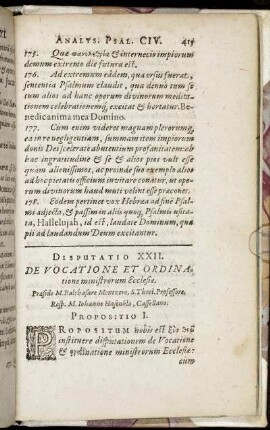 ANALYS. PSAL. CIV. 419
175. Quæ & internecio impiorum
demum extremo die futura est.
176. Ad extremum eâdem, qua orsus fuerat,
sententia Psalmum claudit, qua denuò tum se
tum alios ad hanc operum divinorum medita-
tionem celebrationemq́, excitat & hortatur. Be-
nedic anima mea Domino.
177. Cum enim videret magnam plerorumq́,
eâ in re negligentiam, summam item impiorum
donis Dei scelerate abutentium profanitatem: ab
hac ingratitudine & se & alios pius vult esse
quàm alienissimos, ac proinde suo exemplo alios
ad hoc pietatis officium invitare conatur, ut ope-
rum divinorum haud muti velint esse præcones.
178. Eòdem pertinet vox Hebræa ad finē Psal-
mi adjecta, & passim in aliis quoq́, Psalmis usita-
ta, Hallelujah, id est, laudate Dominum, qua
pii ad laudandum Deum excitantur.
DISPUTATIO XXII.
DE VOCATIONE ET ORDINA-
tione ministrorum Ecclesiæ.
Præside M. Balthasare Mentzero, S. Theol. Professore,
Resp. M. Iohanne Cassellano.
PROPOSITIO I.
PROPOSITUM nobis est
instituere disputationem de Vocatione
& ordinatione ministrorum Ecclesiæ:
cum